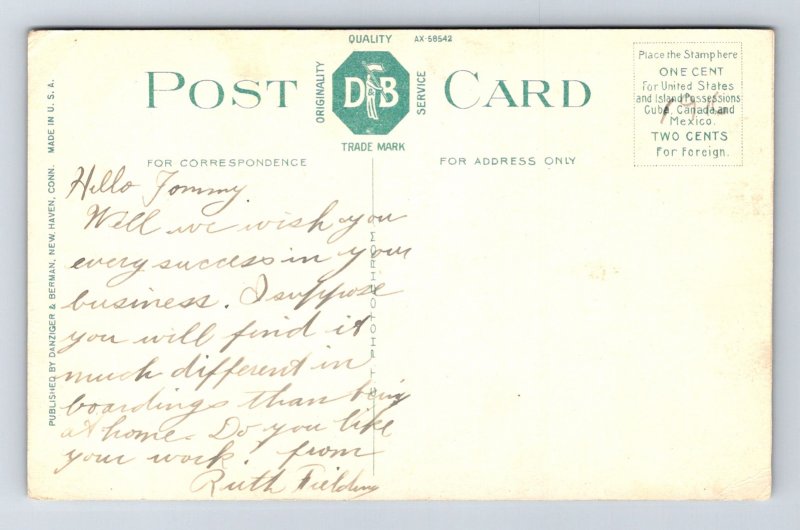 QUALITY AX-58542
POST CARD
ORIGINALITY
D & B
SERVICE
TRADE MARK
FOR CORRESPONDENCE
FOR ADDRESS ONLY
Place the Stamp here
ONE CENT
For United States
and Island Possessions
Cuba, Canada and
Mexico.
TWO CENTS
For Foreign.
PUBLISHED BY DANZIGER & BERMAN, NEW HAVEN, CONN. MADE IN U. S. A.
Hello Tommy.
Well we wish you
every success in your
business. I suppose
you will find it
much different in
boardings than being
at home. Do you like
your work. from
Ruth Fielding
PHOTOCHROM